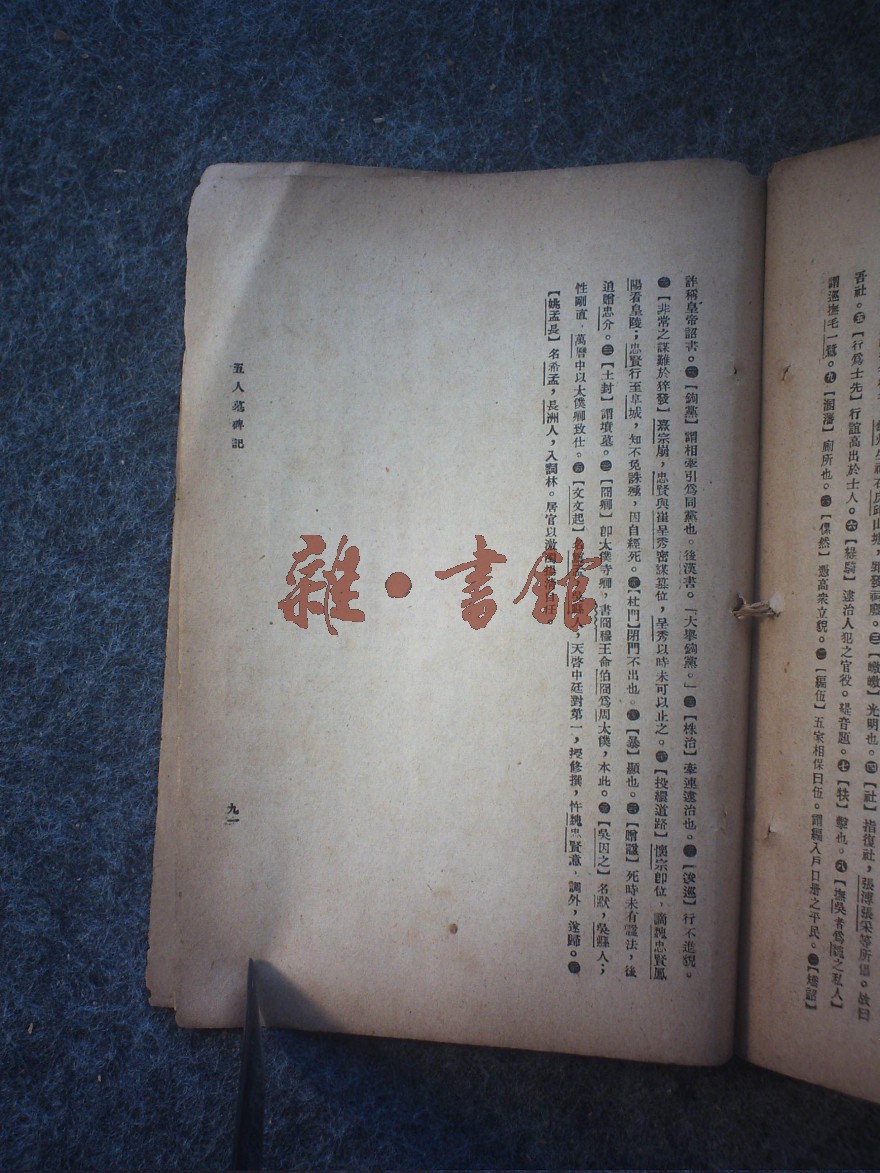 吾社。㊄【行爲士先】行誼高出於士人。㊅【緹騎】逮治人犯之官役。緹音題。㊆【抶】擊也。㊇【撫吳者爲魏之私人】
謂巡撫毛一鷺。㊈【溷藩】廁所也。【傫然】憑高衆立貌。【編伍】五家相保曰伍。謂編入戶口册之平民。【矯詔】
詐稱皇帝詔書。【鉤黨】謂相牽引爲同黨也。後漢書。「大舉鉤黨。」【株治】牽連逮治也。【浚巡】行不進貌。
【非常之謀難於猝發】熹宗崩，忠賢與崔呈秀密謀墓位，呈秀以時未可以止之。【投繯道路】懷宗卽位，謫魏忠賢鳳
陽看皇陵；忠賢行至阜城，知不免誅殛，因自經死。【杜門】閉門不出也。【暴】顯也。【贈諡】死時未有諡法，後
追贈忠介。【土封】謂墳墓。【冏卿】卽太僕寺卿，書冏穆王命伯冏爲周太僕，本此。【吳因之】名默，吳縣人；
性剛直，萬曆中以太僕卿致仕。【文文起】人，天啓中廷對第一，授修撰，忤魏忠賢意，調外，遂歸。
【姚孟長】名希孟，長洲人，入詞林。居官以激
五人墓碑記
九一
雜·書館